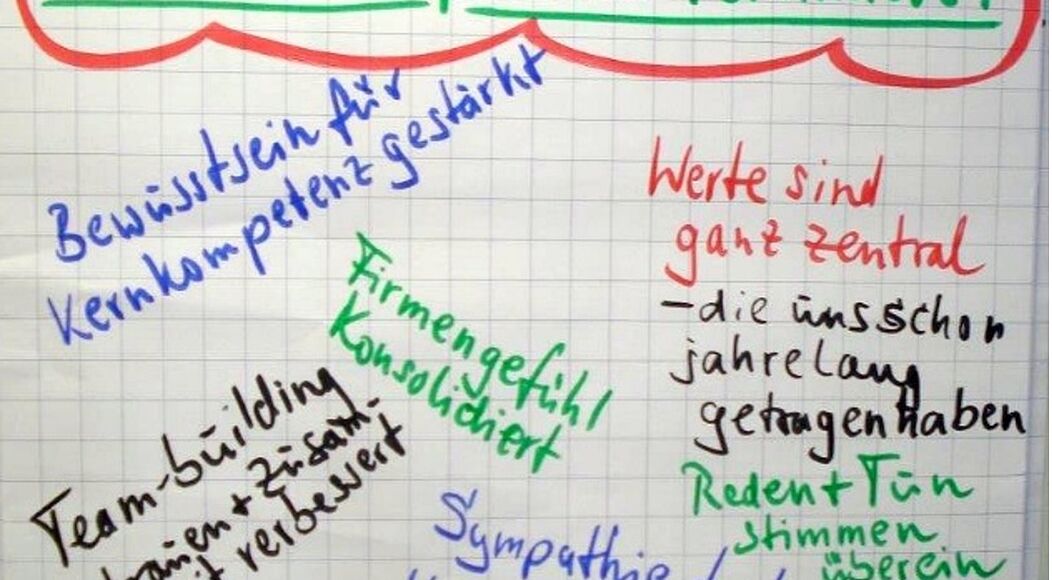 Bewusstsein für
Kernkompetenz gestärkt
Werte sind
ganz zentral
- die uns schon
jahrelang
getragen haben
Firmengefühl
Konsolidiert
Team-building
+ Zusam-
Reden + Tun
stimmen
überein
Sympathie